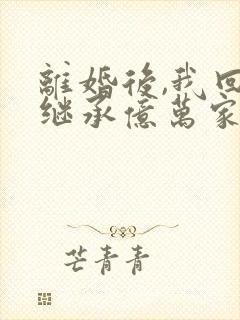 離婚後,我回
继承億萬家
芒青青